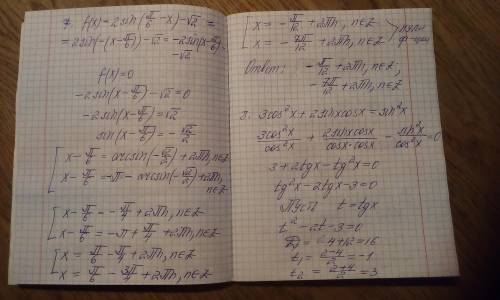 7. f(x) = 2sin(π/6 - x) - √2 =
= 2sin(-(x - π/6)) - √2 = -2sin(x - π/6) -
- √2
f(x) = 0
-2sin(x - π/6) - √2 = 0
-2sin(x - π/6) = √2
sin(x - π/6) = -√2/2
[ x - π/6 = arcsin(-√2/2) + 2πn, n∈Z
x - π/6 = -π - arcsin(-√2/2) + 2πn, n∈Z
[ x - π/6 = -π/4 + 2πn, n∈Z
x - π/6 = -π + π/4 + 2πn, n∈Z
[ x = π/6 - π/4 + 2πn, n∈Z
x = π/6 - 3π/4 + 2πn, n∈Z
[ x = -π/12 + 2πn, n∈Z
x = -7π/12 + 2πn, n∈Z } нули ф-ции
Ответ: -π/12 + 2πn, n∈Z;
-7π/12 + 2πn, n∈Z
3cos²x + 2sinxcosx = sin²x
3cos²x/cos²x + 2sinxcosx/cosx·cosx - sin²x/cos²x = 0
3 + 2tgx - tg²x = 0
tg²x - 2tgx - 3 = 0
Пусть t = tgx
t² - 2t - 3 = 0
D = 4 + 12 = 16
t₁ = 2-4/2 = -1
t₂ = 2+4/2 = 3